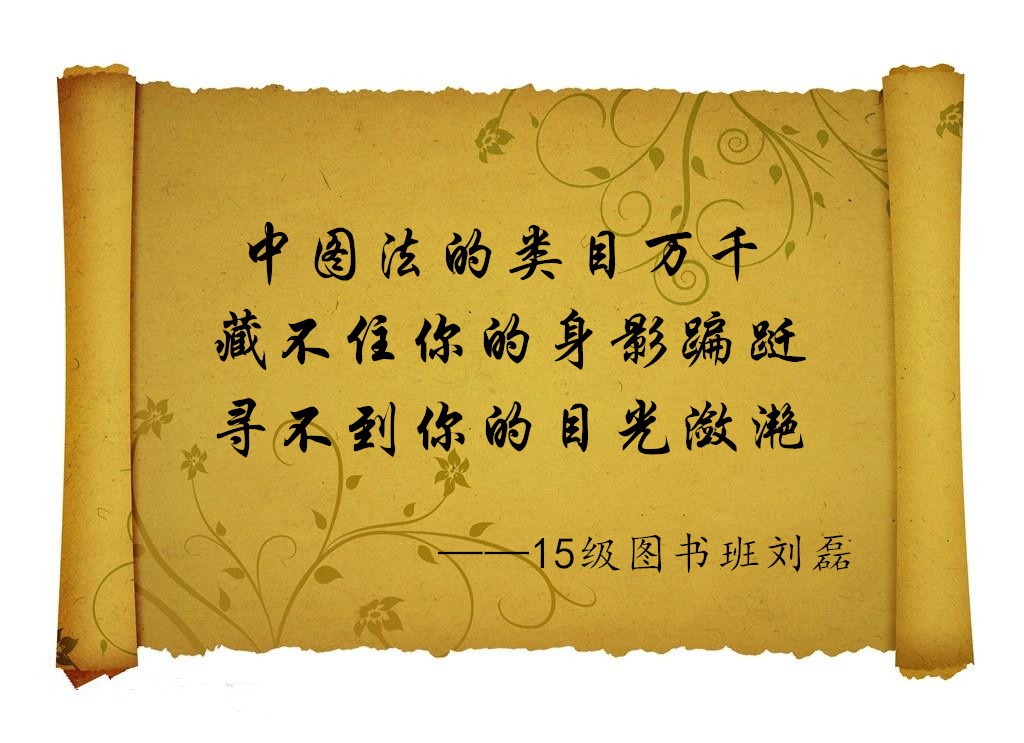 中图法的类目万千
藏不住你的身影蹁跹
寻不到你的目光潋滟
——15级图书班刘磊